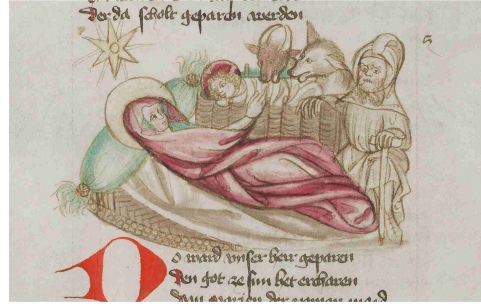 der da scholt geparen werden
O ward vnser herr geparen
Den got ze sun het erchoren
Von marien der